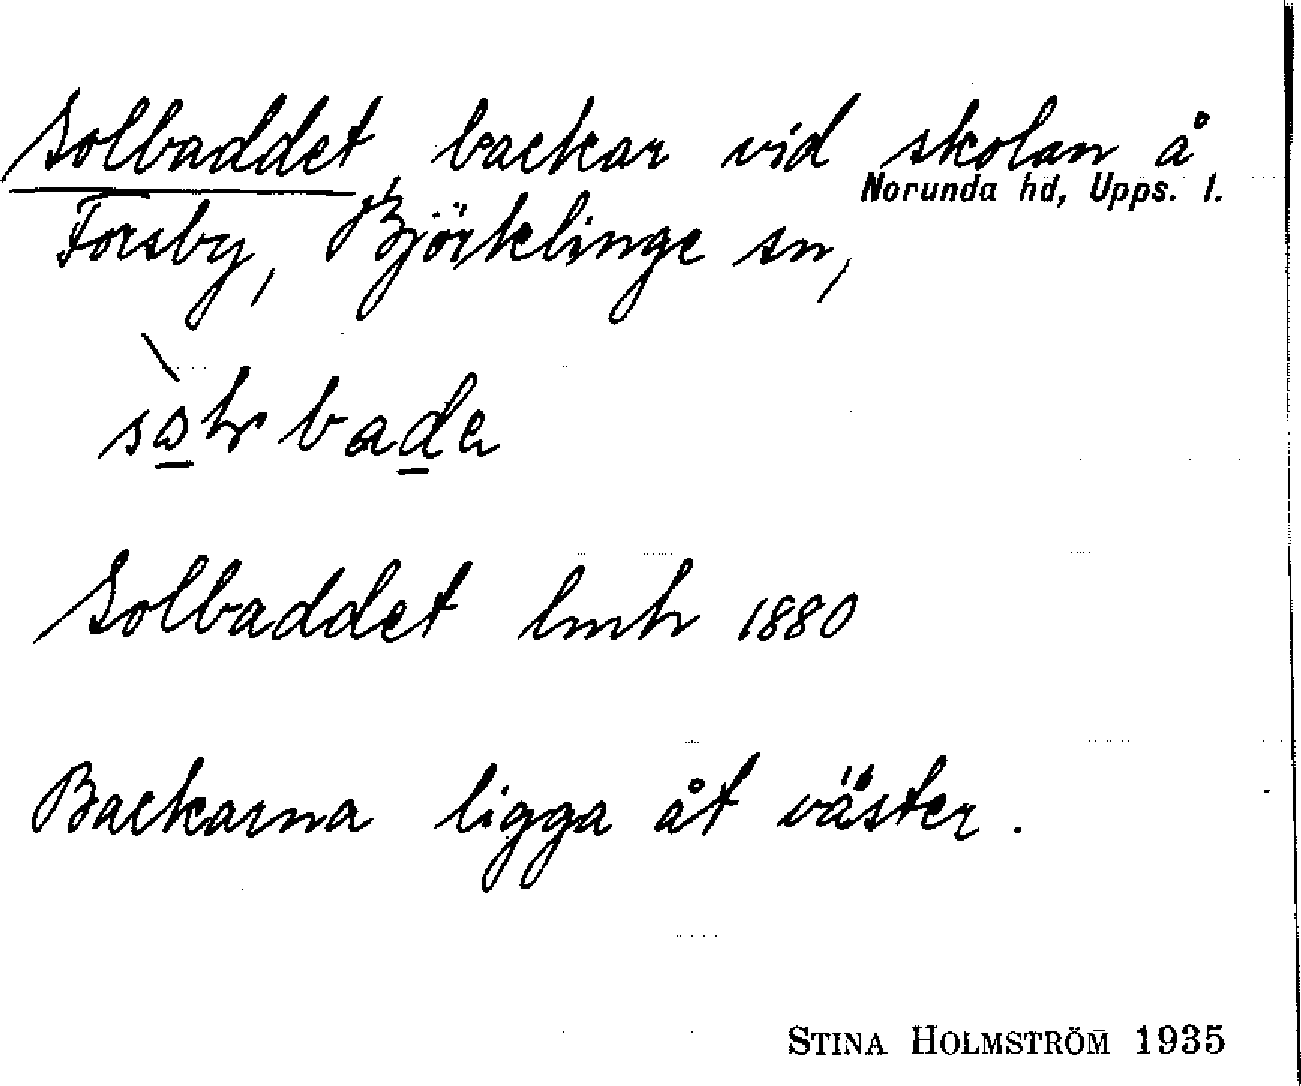 Solbaddet, backar vid skolan å
Norunda hd, Upps. l.
Forsby, Björklinge sn,
Solbaddet lmh 1880
Backarna ligga åt väster.
STINA HOLMSTRÖM 1935